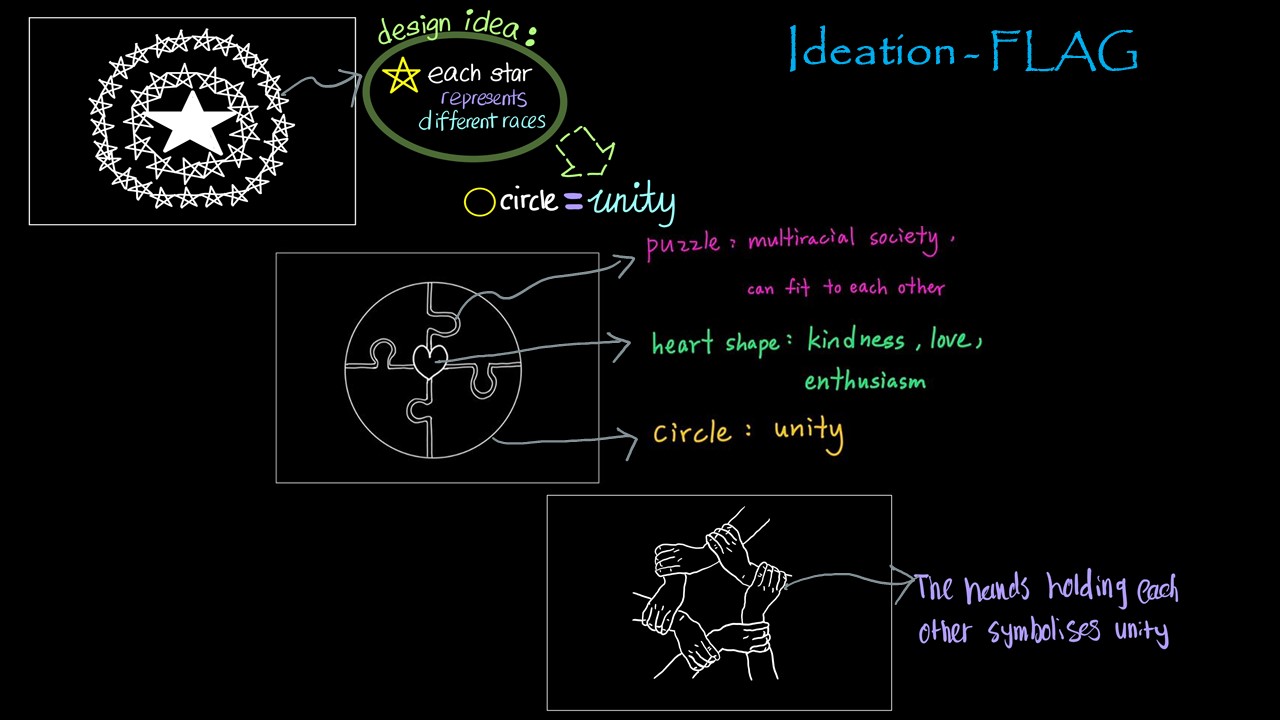 Ideation - FLAG
design idea:
each star
represents
different races
circle = unity
puzzle : multiracial society ,
can fit to each other
heart shape : kindness , love ,
enthusiasm
circle : unity
The hands holding each
other symbolises unity